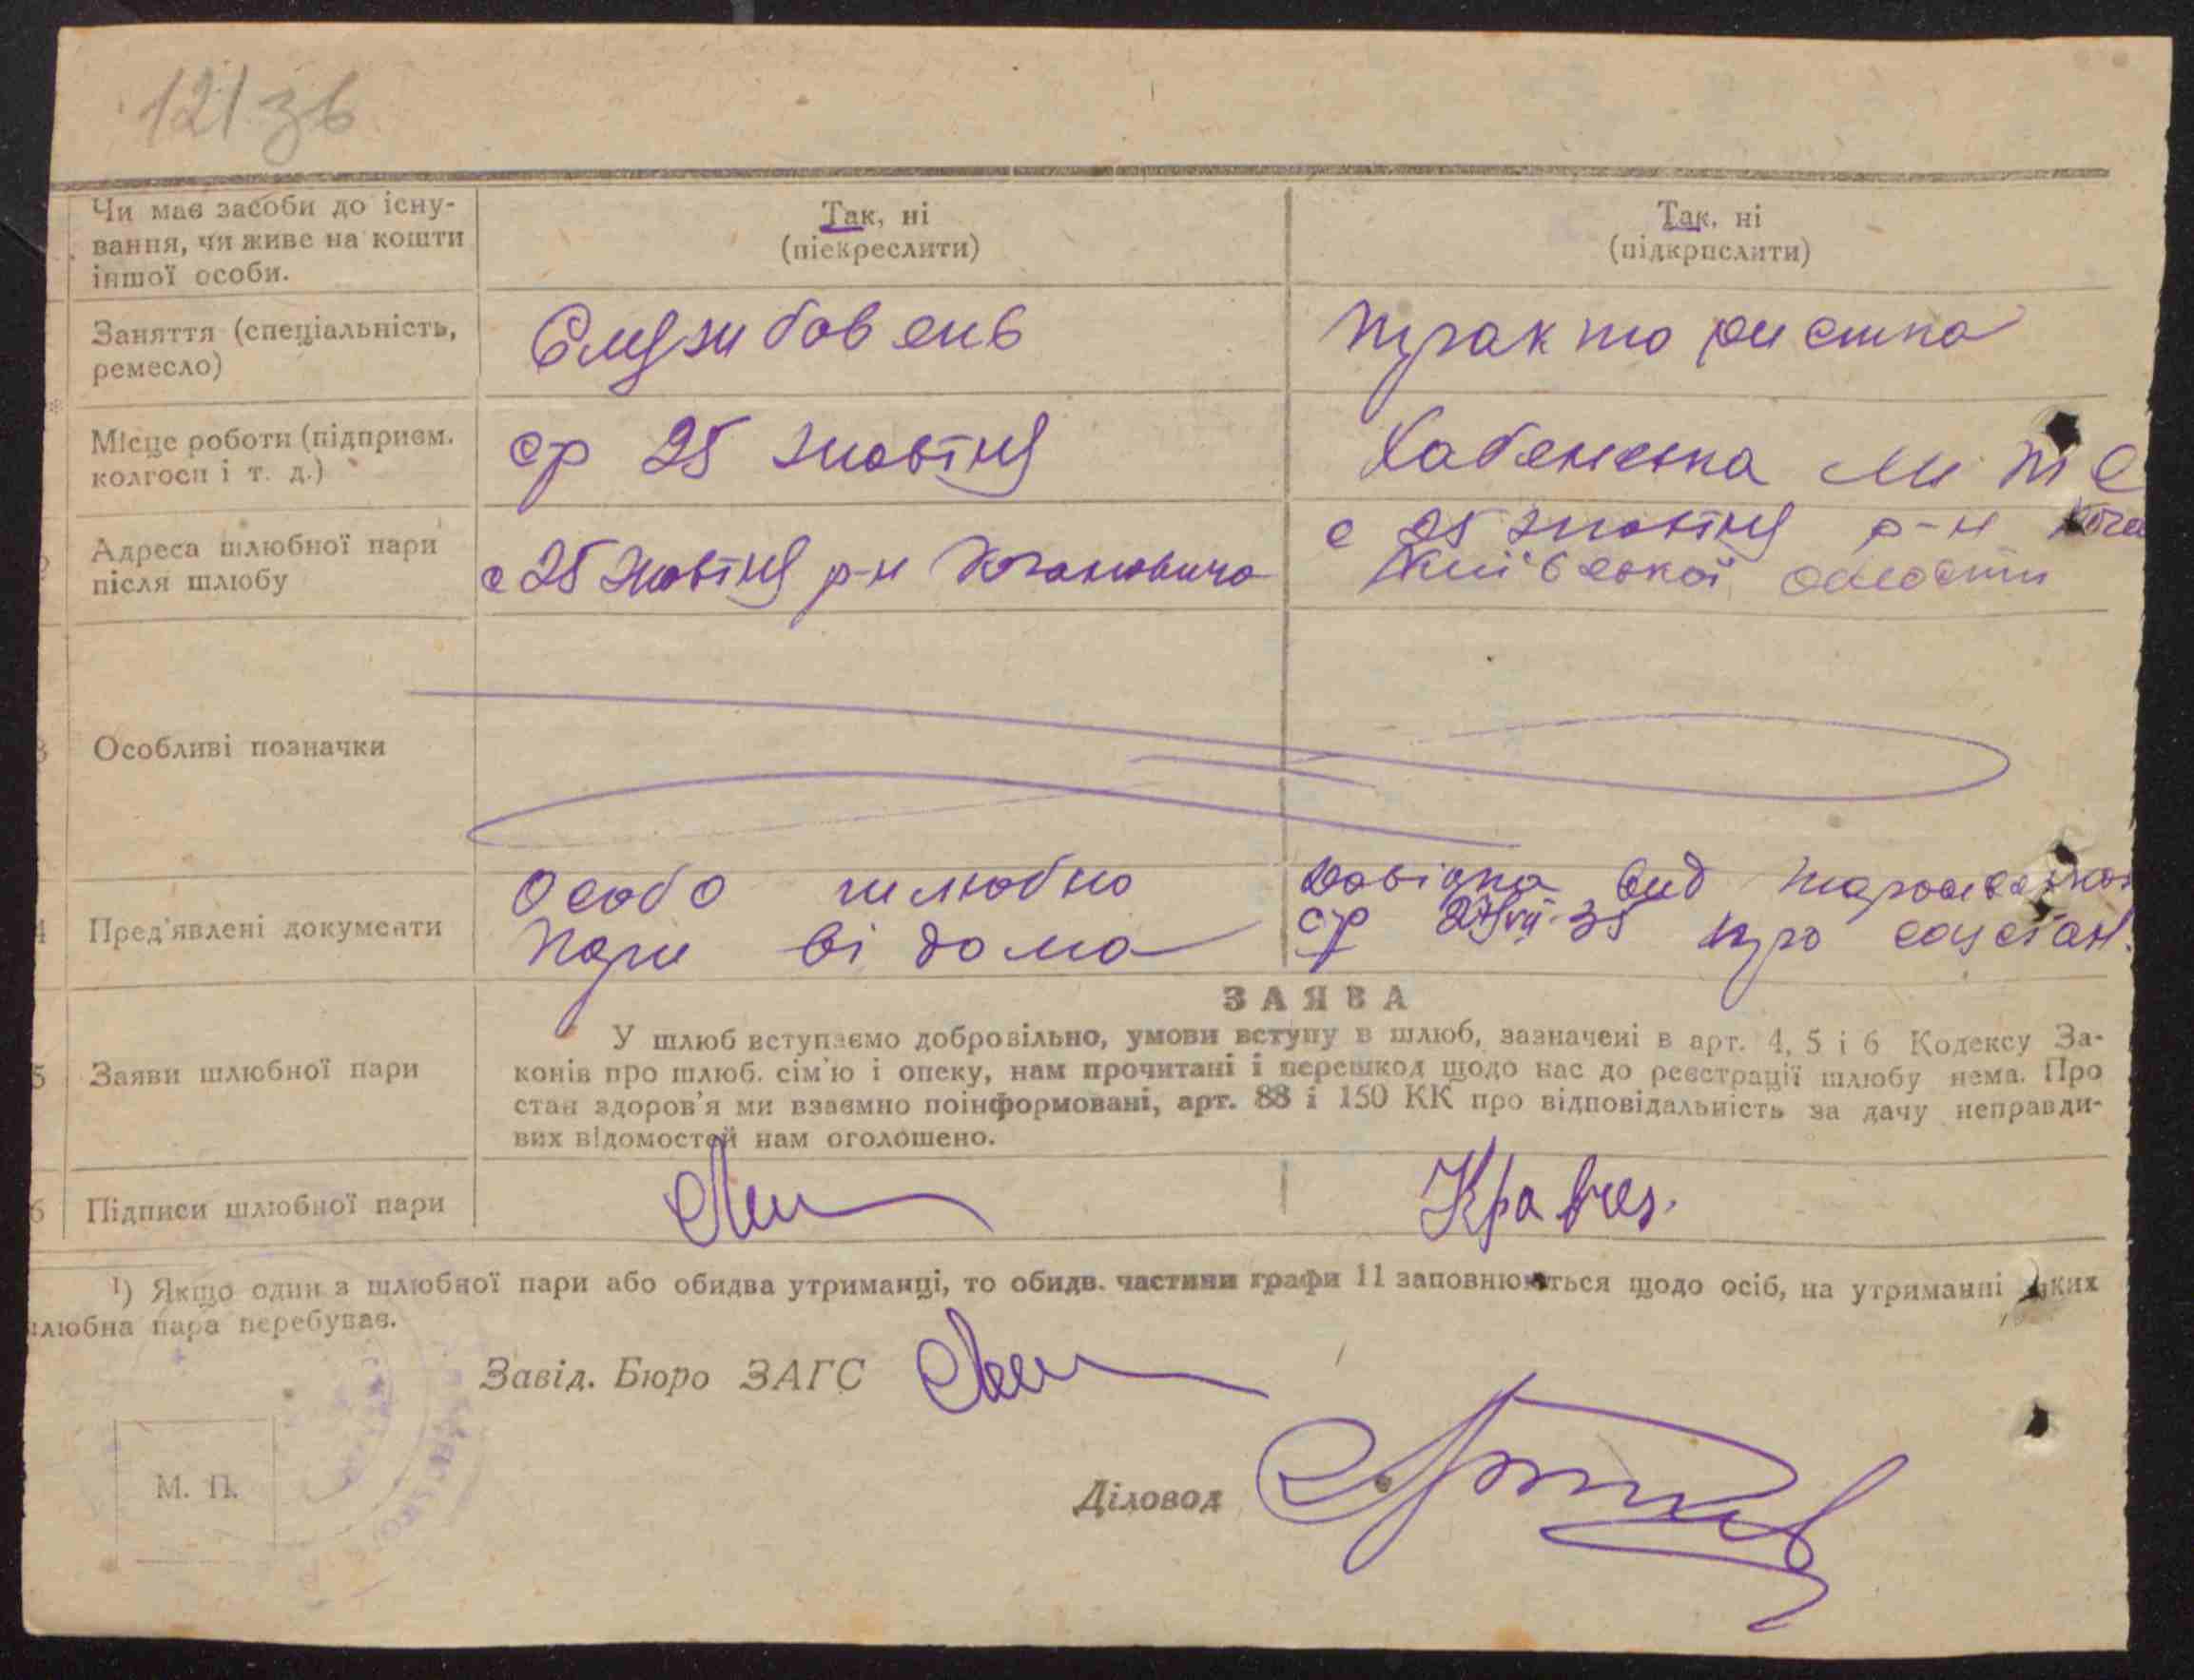 121 зв
Чи має засоби до існу-
вання, чи живе на кошти
іншої особи.
Так, ні
(піекреслити)
Так, ні
(підкрпслити)
Заняття (спеціальність,
ремесло)
Службовець
трактористка
Місце роботи (підприєм.
колгосп і т. д.)
ср 25 жовтня
Хабенська МТС
Адреса шлюбної пари
після шлюбу
с 25 Жовтня р-н Кагановича
с 25 жовтня р-н
Київської області
Особливі позначки
Пред'явлені документи
Особо шлюбно
пари відома
Довідка від
ср 27/VII-35 про соцстан.
ЗАЯВА
Заяви шлюбної пари
У шлюб вступаємо добровільно, умови вступу в шлюб, зазначені в арт. 4, 5 і 6 Кодексу За-
конів про шлюб. сім'ю і опеку, нам прочитані і перешкод щодо нас до реєстрації шлюбу нема. Про
стан здоров'я ми взаємно поінформовані, арт. 88 і 150 КК про відповідальність за дачу неправди-
вих відомостей нам оголошено.
Підписи шлюбної пари
Кравчеч.
¹) Якщо один з шлюбної пари або обидва утриманці, то обидв. частини графи 11 заповнюються щодо осіб, на утриманні яких
шлюбна пара перебуває.
Завід. Бюро ЗАГС
М. П.
Діловод